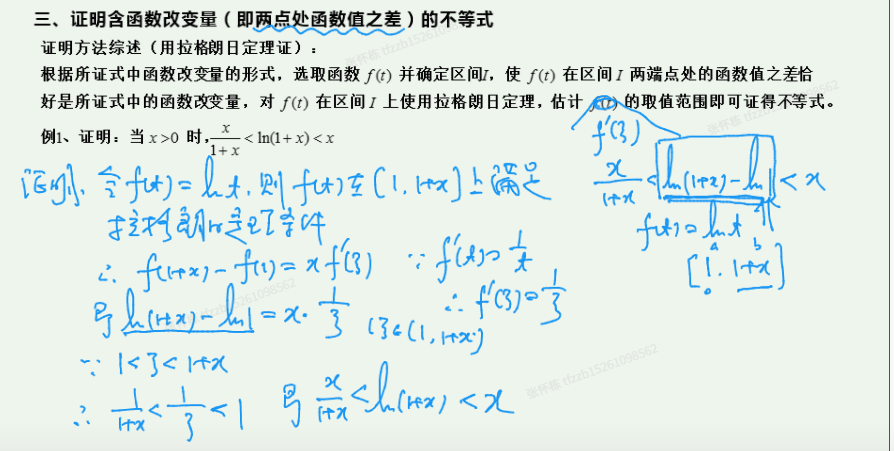 三、证明含函数改变量（即两点处函数值之差）的不等式
证明方法综述（用拉格朗日定理证）：
根据所证式中函数改变量的形式，选取函数 f(t) 并确定区间I，使 f(t) 在区间 I 两端点处的函数值之差恰
好是所证式中的函数改变量，对 f(t) 在区间 I 上使用拉格朗日定理，估计 f'(t) 的取值范围即可证得不等式。
例1、证明：当 x>0 时，x/(1+x) < ln(1+x) < x
f'(ξ)
x/(1+x) < ln(1+x) - ln1 < x
f(t) = ln t
a b
[1, 1+x]
证明：令 f(t) = ln t, 则 f(t) 在 [1, 1+x] 上满足
拉格朗日定理条件
∴ f(1+x) - f(1) = x f'(ξ) ∵ f'(t) = 1/t
即 ln(1+x) - ln1 = x · 1/ξ ∴ f'(ξ) = 1/ξ
(ξ∈(1, 1+x))
∵ 1 < ξ < 1+x
∴ 1/(1+x) < 1/ξ < 1 即 x/(1+x) < ln(1+x) < x
张怀栋 tfzzb15261098562